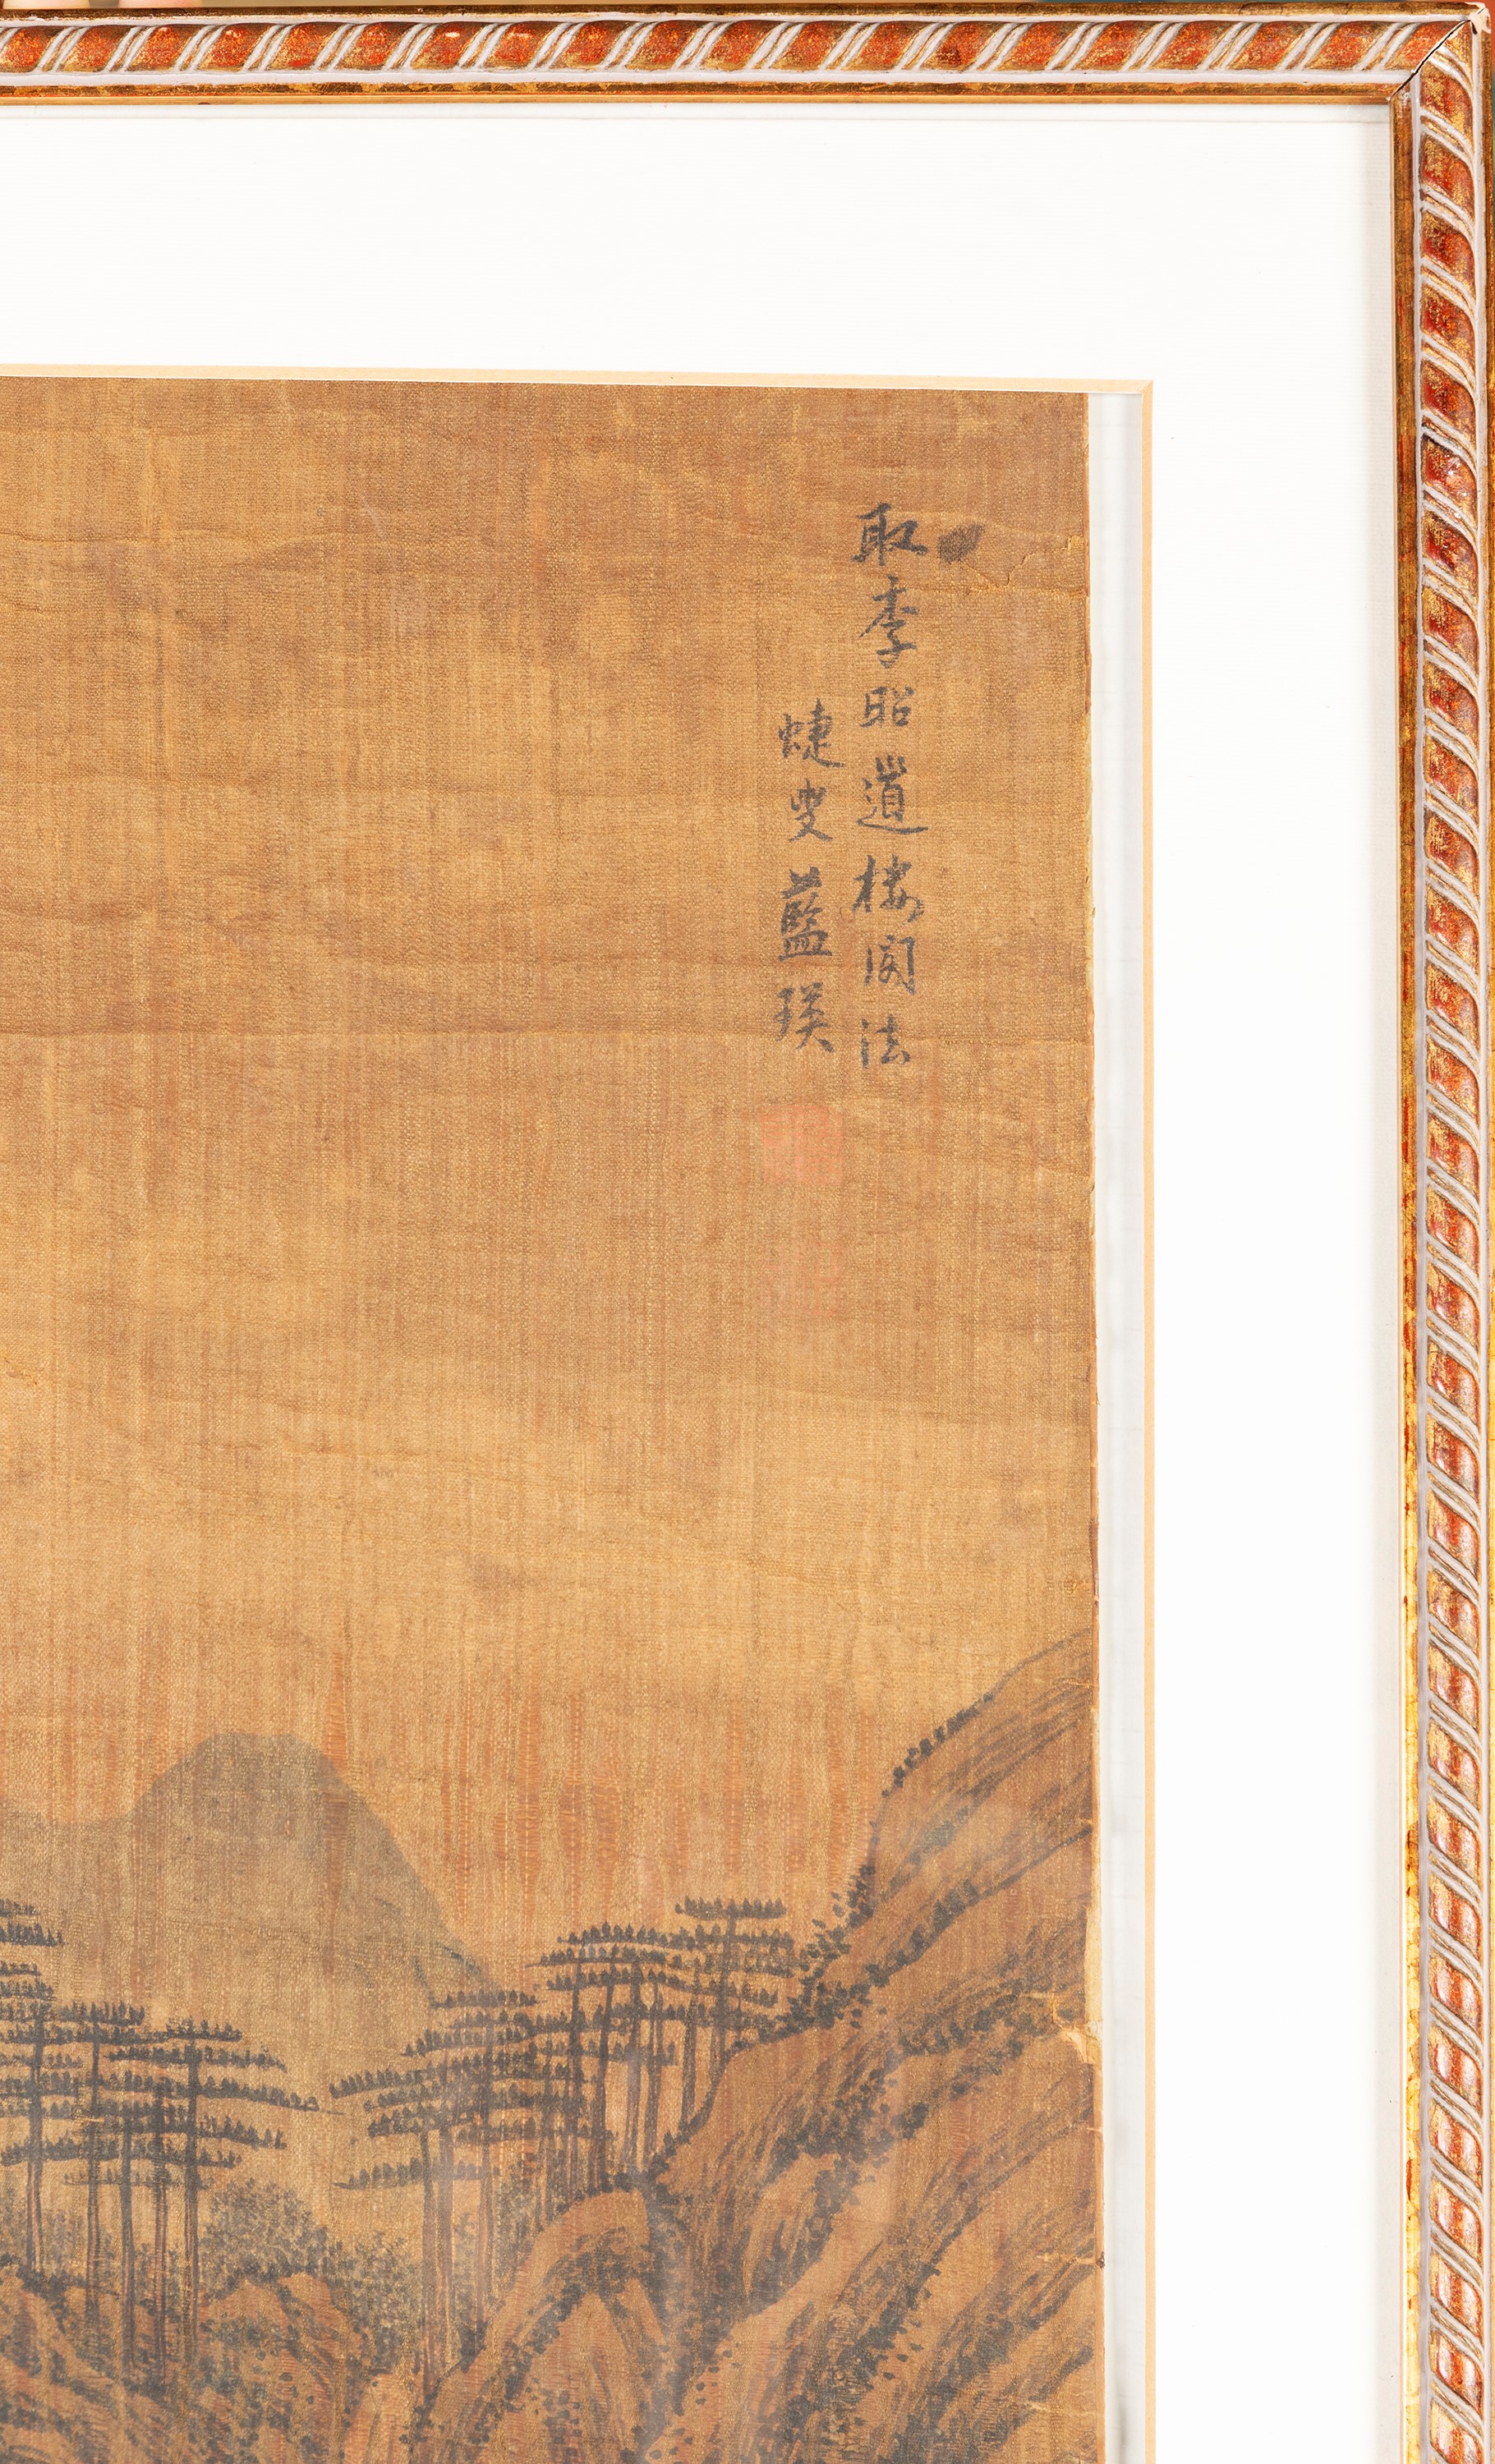 取李昭道楼阁法
蜨叟藍瑛